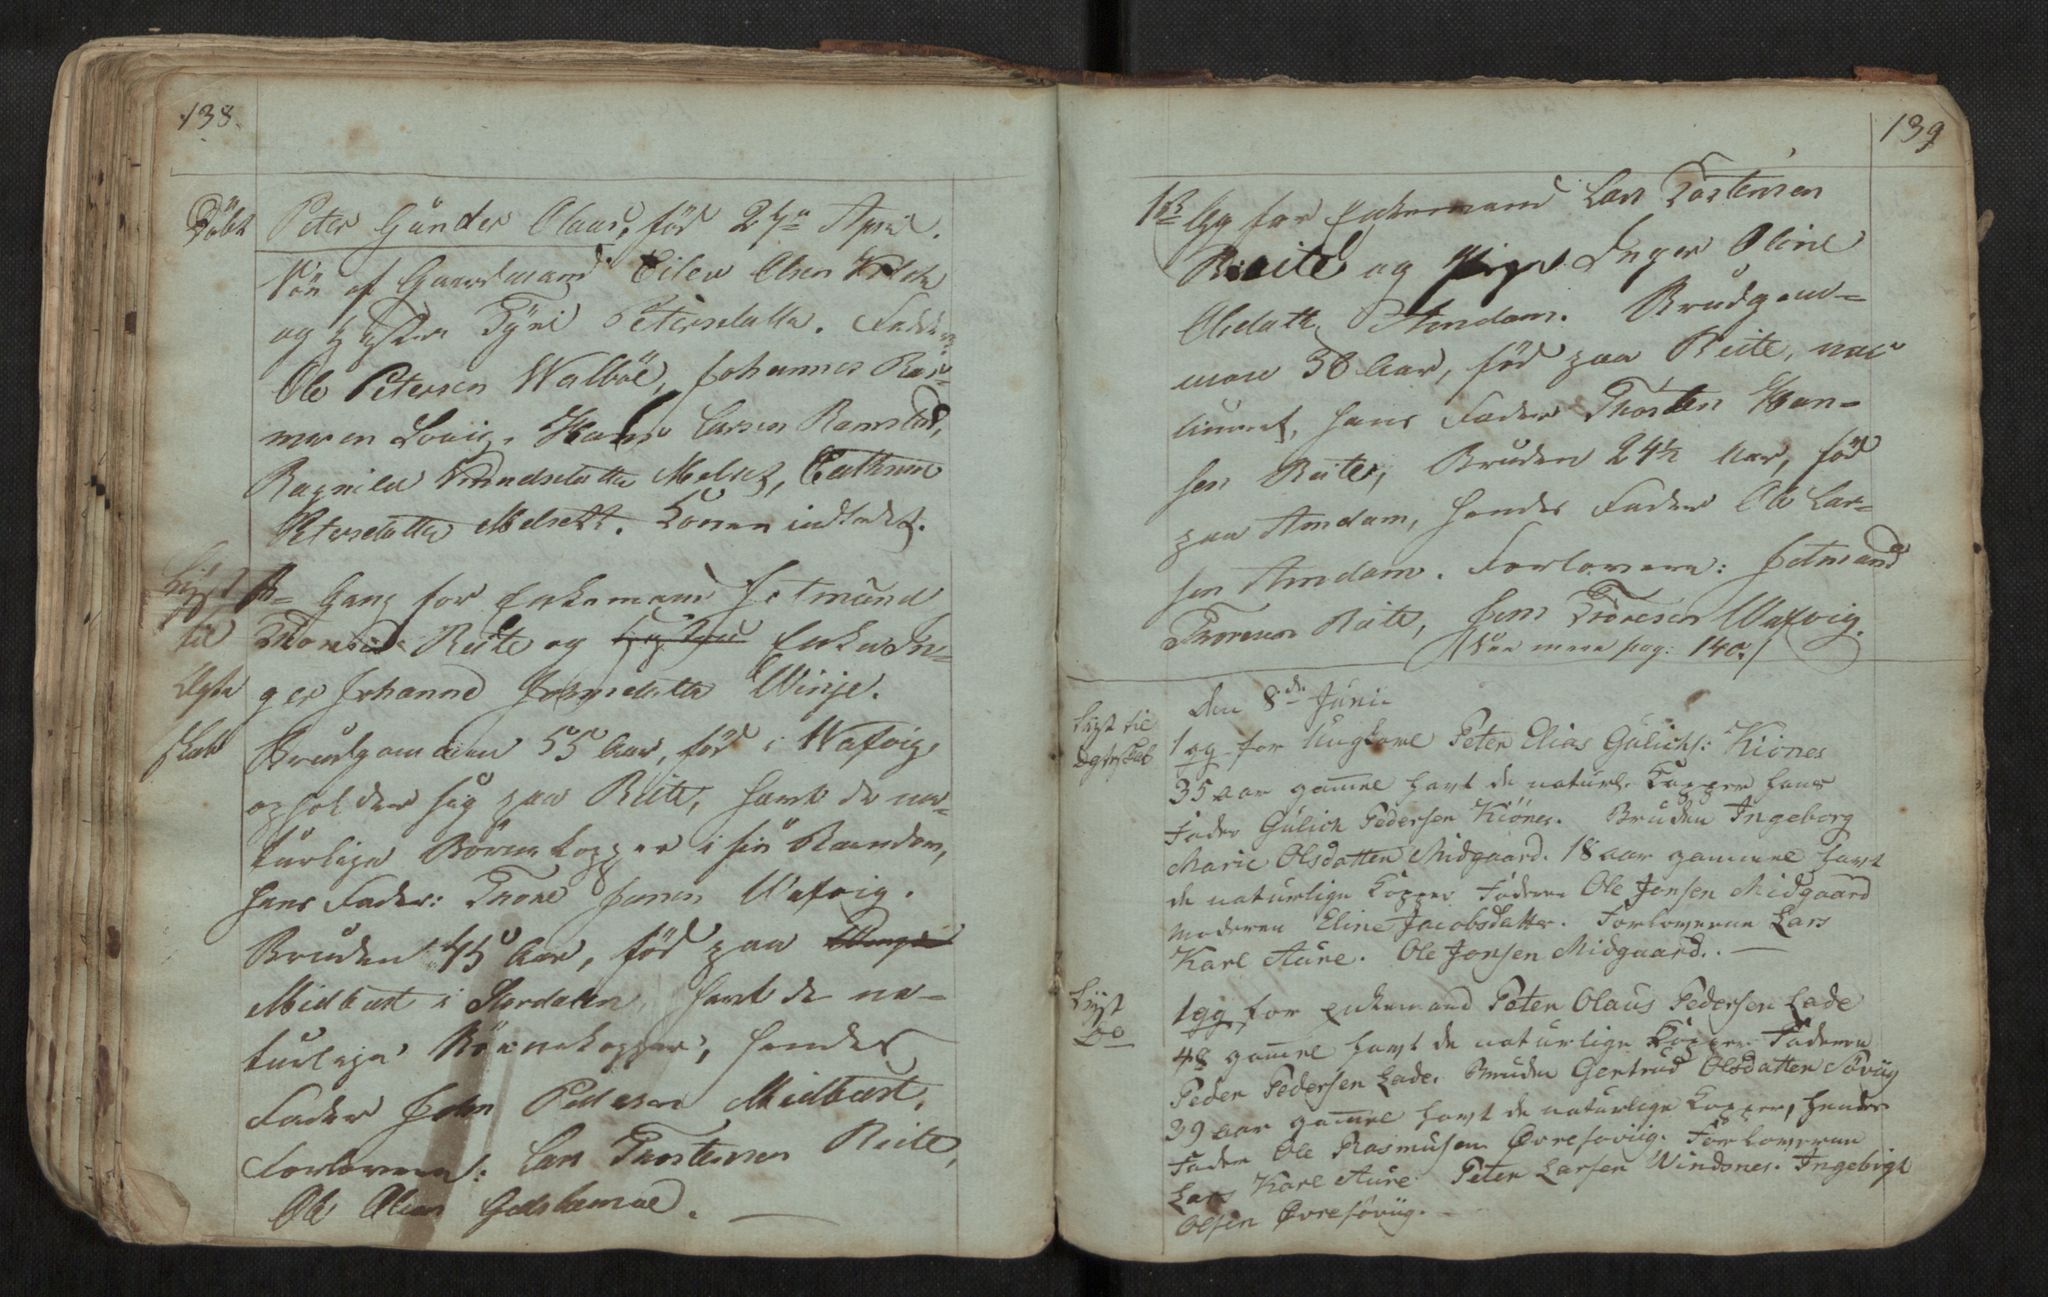 138.
Döbt
Peter Günder Olaus, föd 27de April.
Sön af Gaardmand Eilev Olsen
og Hustru Petersdatter. Faddere
Ole Petersen Walböe, Johannes Ras-
musen Hans Larsen Ramstad,
Ragnild Melset, Cathrine
Petersdatter Melsett. Konen indledet.
Lyst
til
Ægte
skab
1te Gang for Enkemand Jetmund
Thoresen Reite og Enke In-
ger Johanne Johnsdatter Winje.
Brudgommen 55 Aar, föd i Wattvig,
opholder sig paa Reite, havt de na-
turlige Börnekopper i sin Barndom,
hans Fader: Thore Jonsen Wattvig.
Bruden 45 Aar, föd paa
Midbust i Stordalen, havt de na-
turlige Börnekopper, hendes
Fader John Pedersen Midbust.
Forlovere: Lars Thorstensen Reite,
Ole Olsen Gedskemoe.
139
1te Gg for Enkemand Lars Torstensen
Reite og Pige Inger Oline
Olsdatter Amdam. Brudgom-
men 38 Aar, föd paa Reite, vac-
cineret, hans Fader Thorsten Han-
sen Reite, Bruden 24½ Aar, föd
paa Amdam, hendes Fader Ole Lar-
sen Amdam. Forlovere: Jetmund
Thoresen Reite, Jens Thoresen Wattvig.
(See mere pag: 140.)
Den 8de Juni
Lyst til
Egteskab
1 gg for Ungkarl Peter Elias Gülichs: Kiönes
35 aar gammel havt de naturl. Kopper hans
Fader Gülich Pedersen Kiönes. Bruden Ingeborg
Marie Olsdatter Midgaard. 18 aar gammel havt
de naturlige Kopper Faderen Ole Jonsen Midgaard
Moderen Eline Jacobsdatter. Forloverne Lars
Karl Aure. Ole Jonsen Midgaard.
Lyst
Do
1 gg for Enkemand Peter Olaus Pedersen Lade
48 gammel havt de naturlige Kopper Faderen
Peder Pedersen Lade. Bruden Gertrud Olsdatter Söviig
39 aar gammel havt de naturlige Kopper, hendes
Fader Ole Rasmusen Øvresöviig. Forloverne
Lars Karl Aure Peter Larsen Windsnes. Ingebrigt
Olsen Øvresöviig.